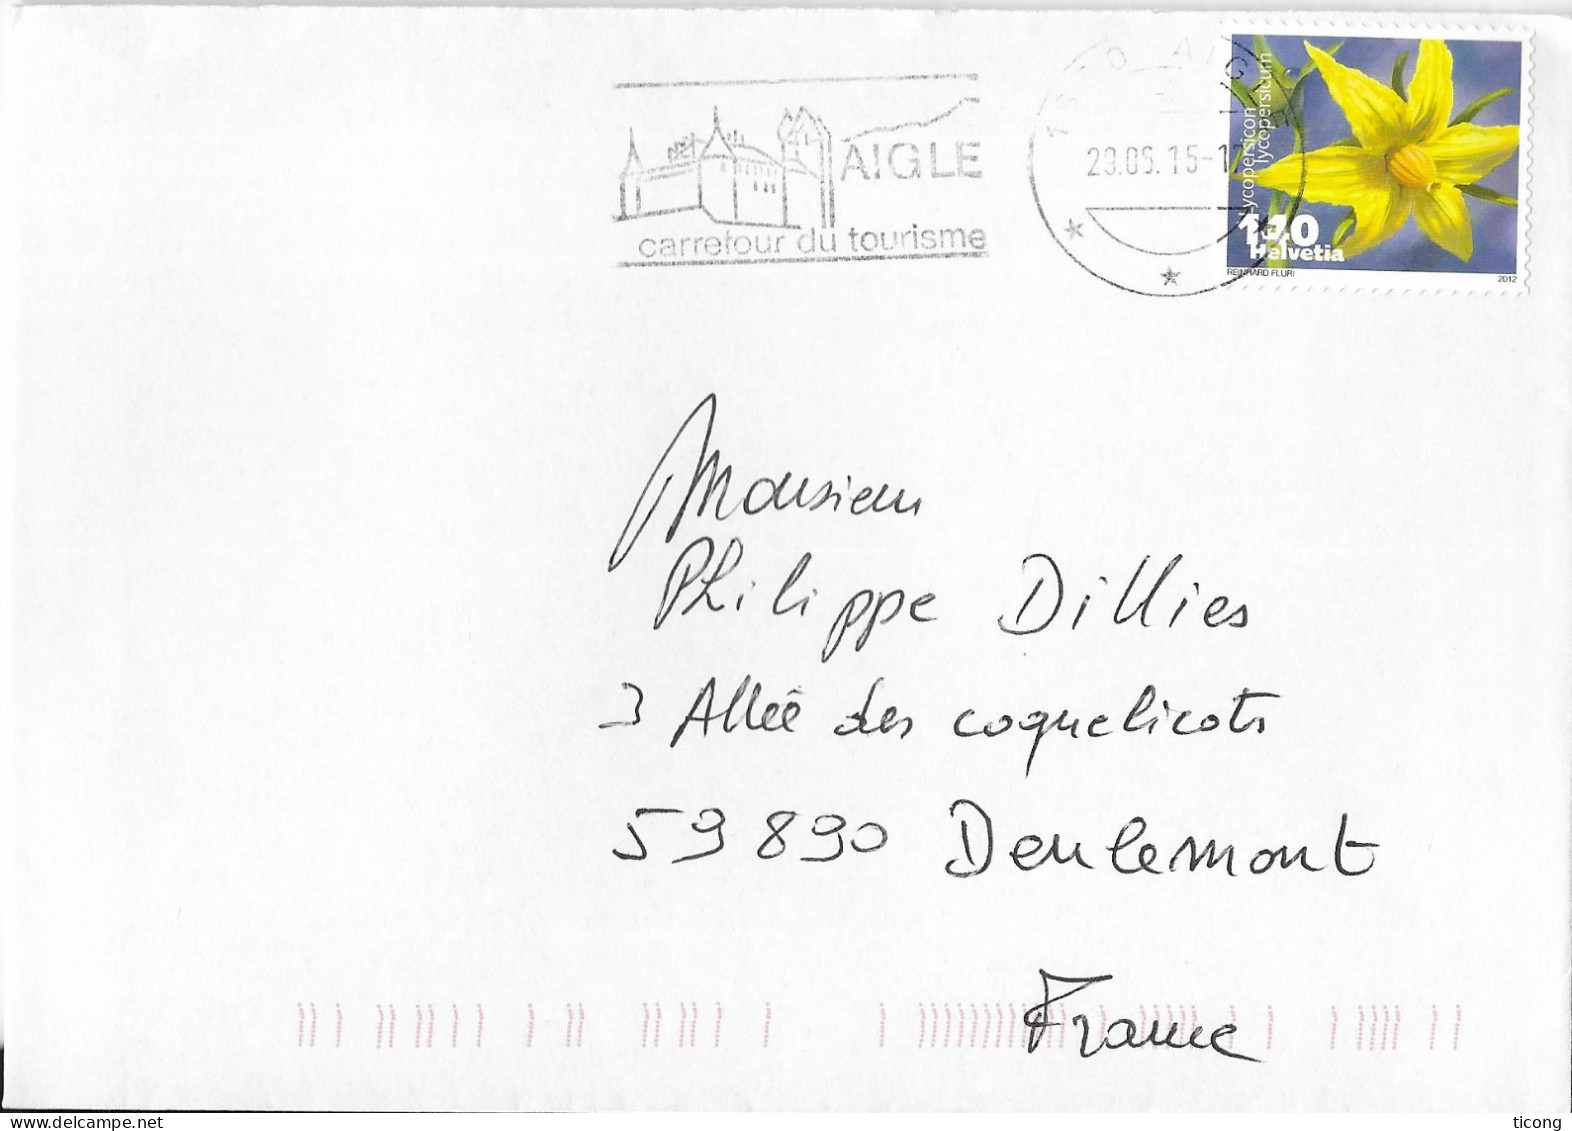 AIGLE
carrefour du tourisme
1860 AIGLE
29.06.15-12
Lycopersicon
lycopersicum
140
Helvetia
REINHARD FLURI
2012
Monsieur
Philippe Dillies
3 Allée des coquelicots
59890 Deulemont
France
ticong